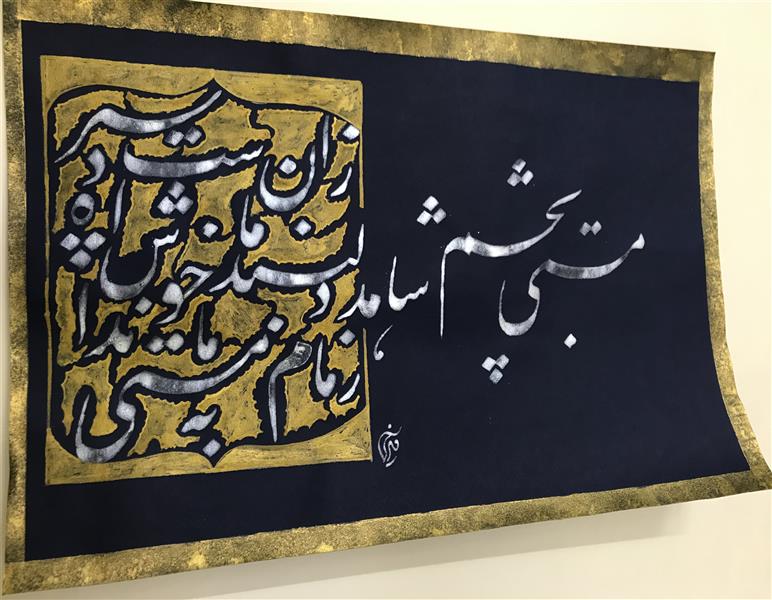 مستی بچشم شاهد دلبند ما خوش است
زان رو سپرده اند به مستی زمام ما